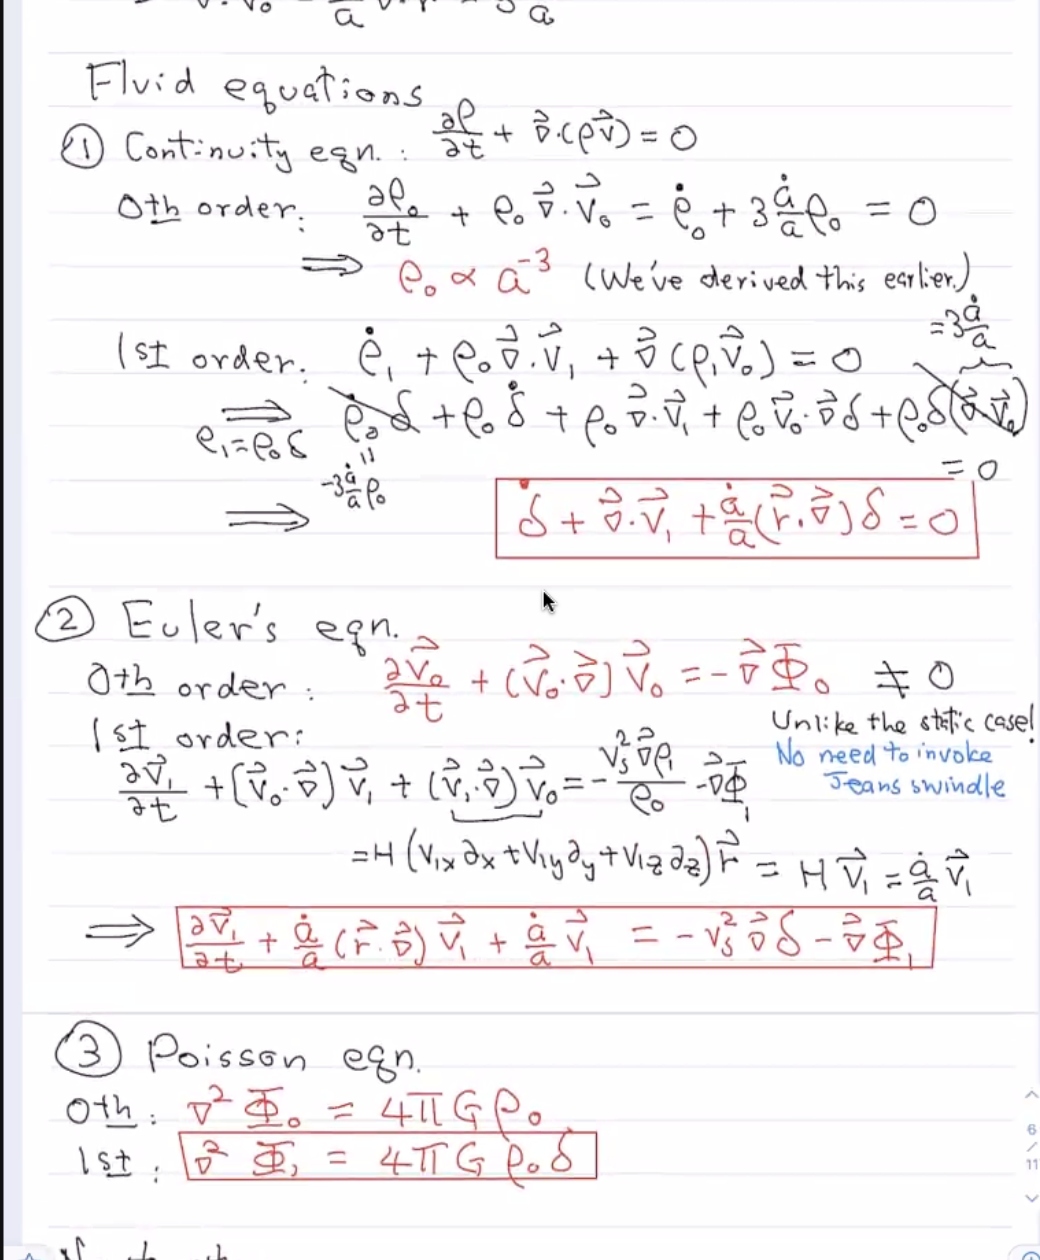 Fluid equations
① Continuity eqn. : ∂ρ/∂t + ∇⃗·(ρv⃗) = 0
0th order: ∂ρ₀/∂t + ρ₀ ∇⃗·v⃗₀ = ρ̇₀ + 3 ȧ/a ρ₀ = 0
⟹ ρ₀ ∝ a⁻³ (We've derived this earlier.)
= 3 ȧ/a
1st order: ρ̇₁ + ρ₀ ∇⃗·v⃗₁ + ∇⃗(ρ₁v⃗₀) = 0
⟹ ρ̇₀ δ + ρ₀ δ̇ + ρ₀ ∇⃗·v⃗₁ + ρ₀ v⃗₀·∇⃗δ + ρ₀δ(∇⃗·v⃗₀)
ρ₁=ρ₀δ
= 0
-3 ȧ/a ρ₀
⟹ δ̇ + ∇⃗·v⃗₁ + ȧ/a (r⃗·∇⃗)δ = 0
② Euler's eqn.
0th order: ∂v⃗₀/∂t + (v⃗₀·∇⃗) v⃗₀ = -∇⃗Φ₀ ≠ 0
Unlike the static case!
No need to invoke
Jeans swindle
1st order:
∂v⃗₁/∂t + (v⃗₀·∇⃗) v⃗₁ + (v⃗₁·∇⃗) v⃗₀ = - vₛ²∇⃗ρ₁/ρ₀ - ∇⃗Φ₁
= H (v₁ₓ∂ₓ + v₁y∂y + v₁z∂z) r⃗ = H v⃗₁ = ȧ/a v⃗₁
⟹ ∂v⃗₁/∂t + ȧ/a (r⃗·∇⃗) v⃗₁ + ȧ/a v⃗₁ = -vₛ²∇⃗δ - ∇⃗Φ₁
③ Poisson eqn.
0th: ∇²Φ₀ = 4πGρ₀
1st: ∇²Φ₁ = 4πGρ₀δ
6
/
11